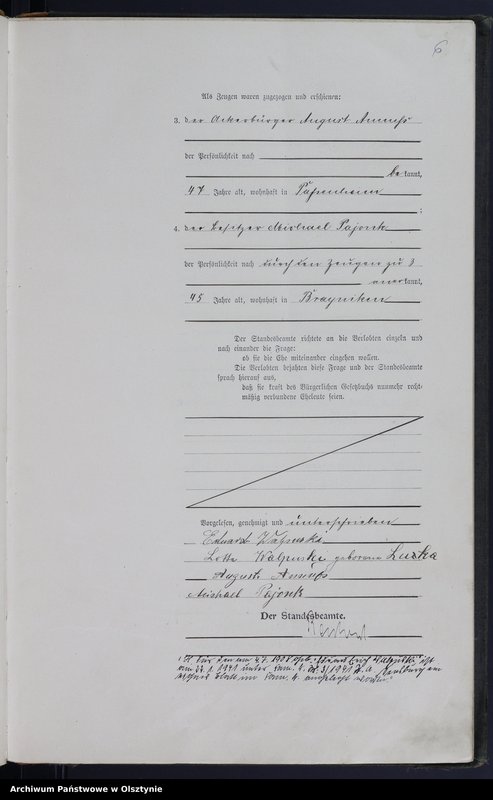 6
Als Zeugen waren zugezogen und erschienen:
3. der Ackerbürger August
der Persönlichkeit nach
be kannt,
47 Jahre alt, wohnhaft in Passenheim
;
4. der Besitzer Michael Pajonk
der Persönlichkeit nach durch den Zeugen zu 3
anerkannt,
45 Jahre alt, wohnhaft in Brayniken
Der Standesbeamte richtete an die Verlobten einzeln und
nach einander die Frage:
ob sie die Ehe miteinander eingehen wollen.
Die Verlobten bejahten diese Frage und der Standesbeamte
sprach hierauf aus,
daß sie kraft des Bürgerlichen Gesetzbuchs nunmehr recht-
mäßig verbundene Eheleute seien.
Vorgelesen, genehmigt und unterschrieben
Eduard Walpuski
Lotte Walpuski geborene Luzka
August
Michael Pajonk
Der Standesbeamte.
am 4.7.1908
1941 unter
Blatt im
Archiwum Państwowe w Olsztynie